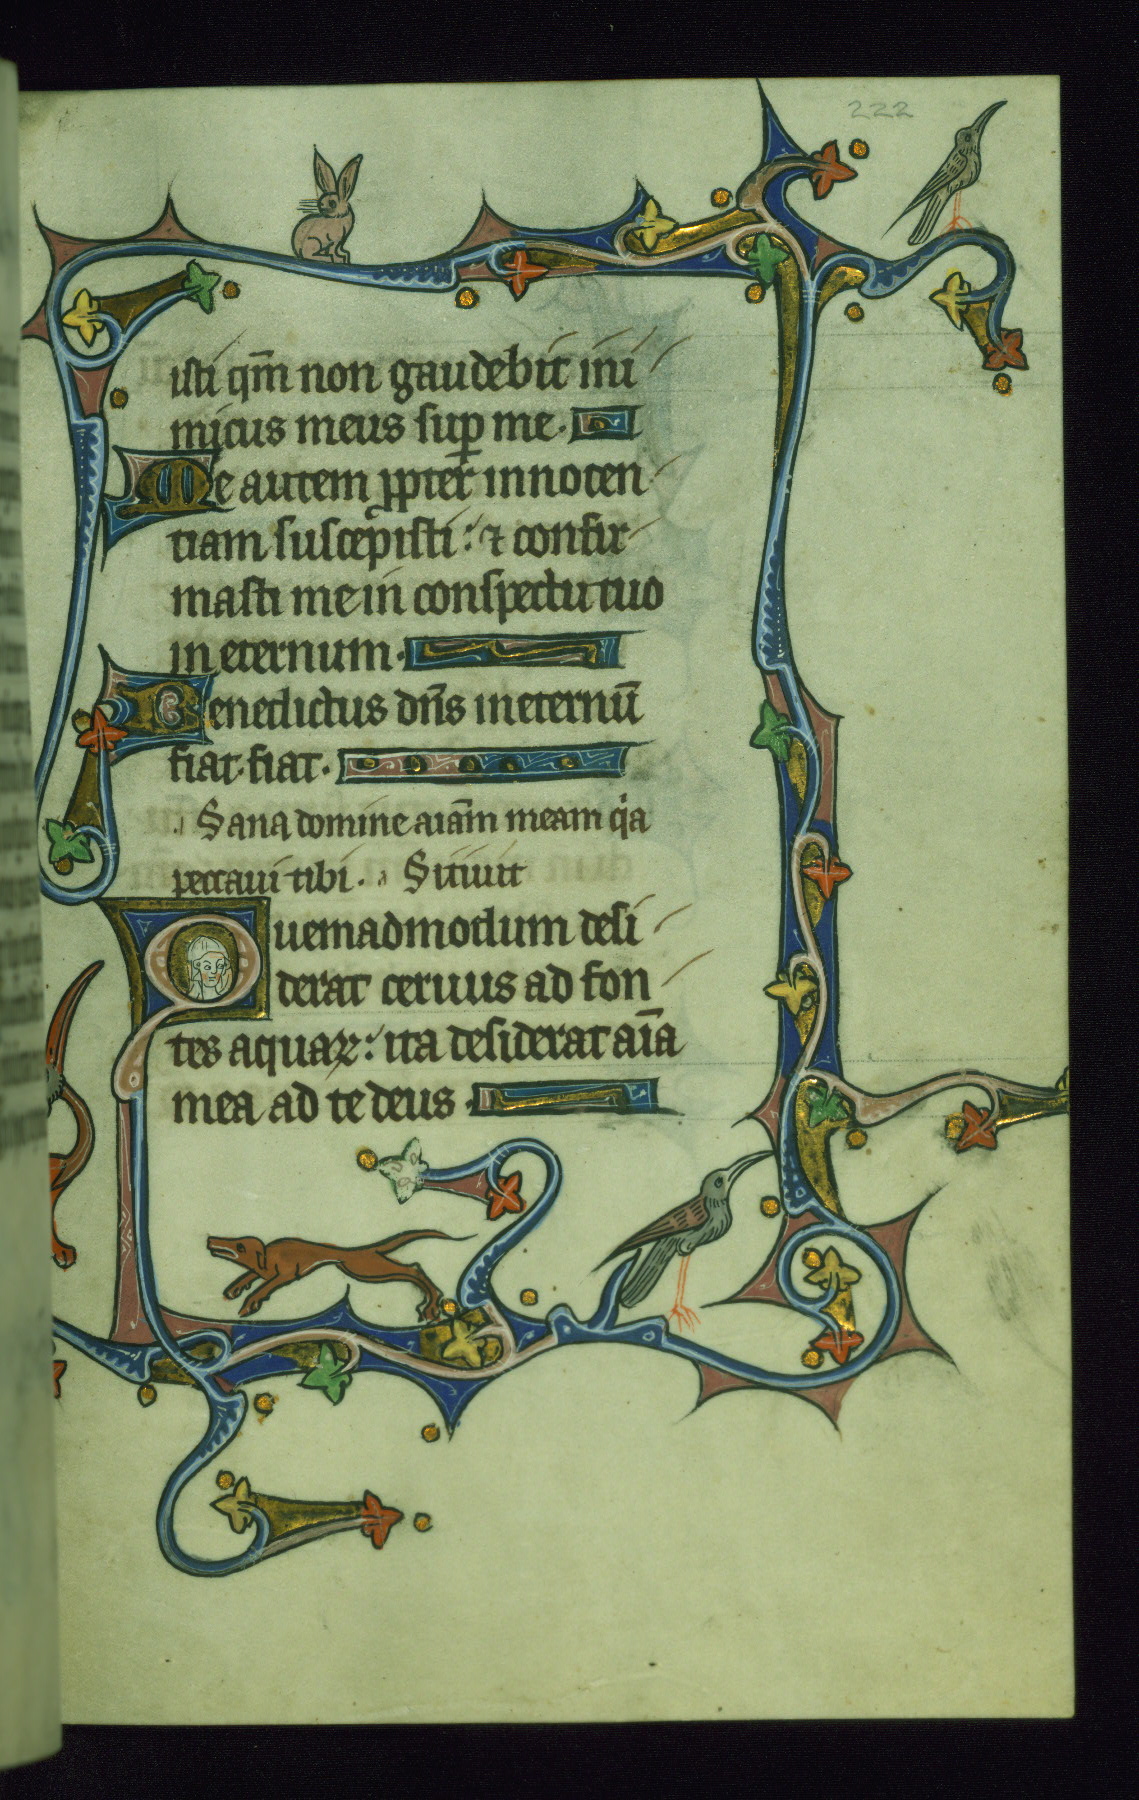 222
isti qm̄ non gaudebit ini
micus meus sup̱ me.
Me autem ꝓpter innocen
tiam suscepisti: ⁊ confir
masti me in conspectu tuo
in eternum.
Benedictus dn̄s in eternū
fiat. fiat.
Sana domine aīam meam qia
peccaui tibi. Sitiuit
Quemadmodum desi
derat ceruus ad fon
tes aquaꝝ: ita desiderat aīa
mea ad te deus